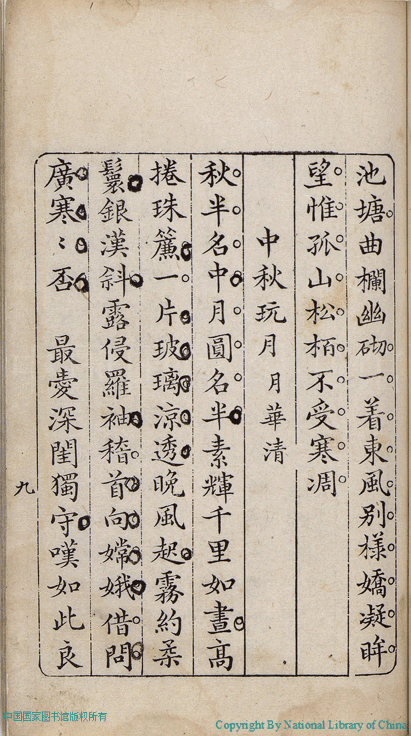 池塘曲欄幽砌一着東風別樣嬌凝眸
望惟孤山松栢不受寒凋
中秋玩月 月華清
秋半名中月圓名半素輝千里如晝高
捲珠簾一片玻璃涼透晚風起霧約柔
鬟銀漢斜露侵羅袖稽首向嫦娥借問
廣寒〻否 最憂深閨獨守嘆如此良
九
中国国家图书馆版权所有
Copyright By National Library of China